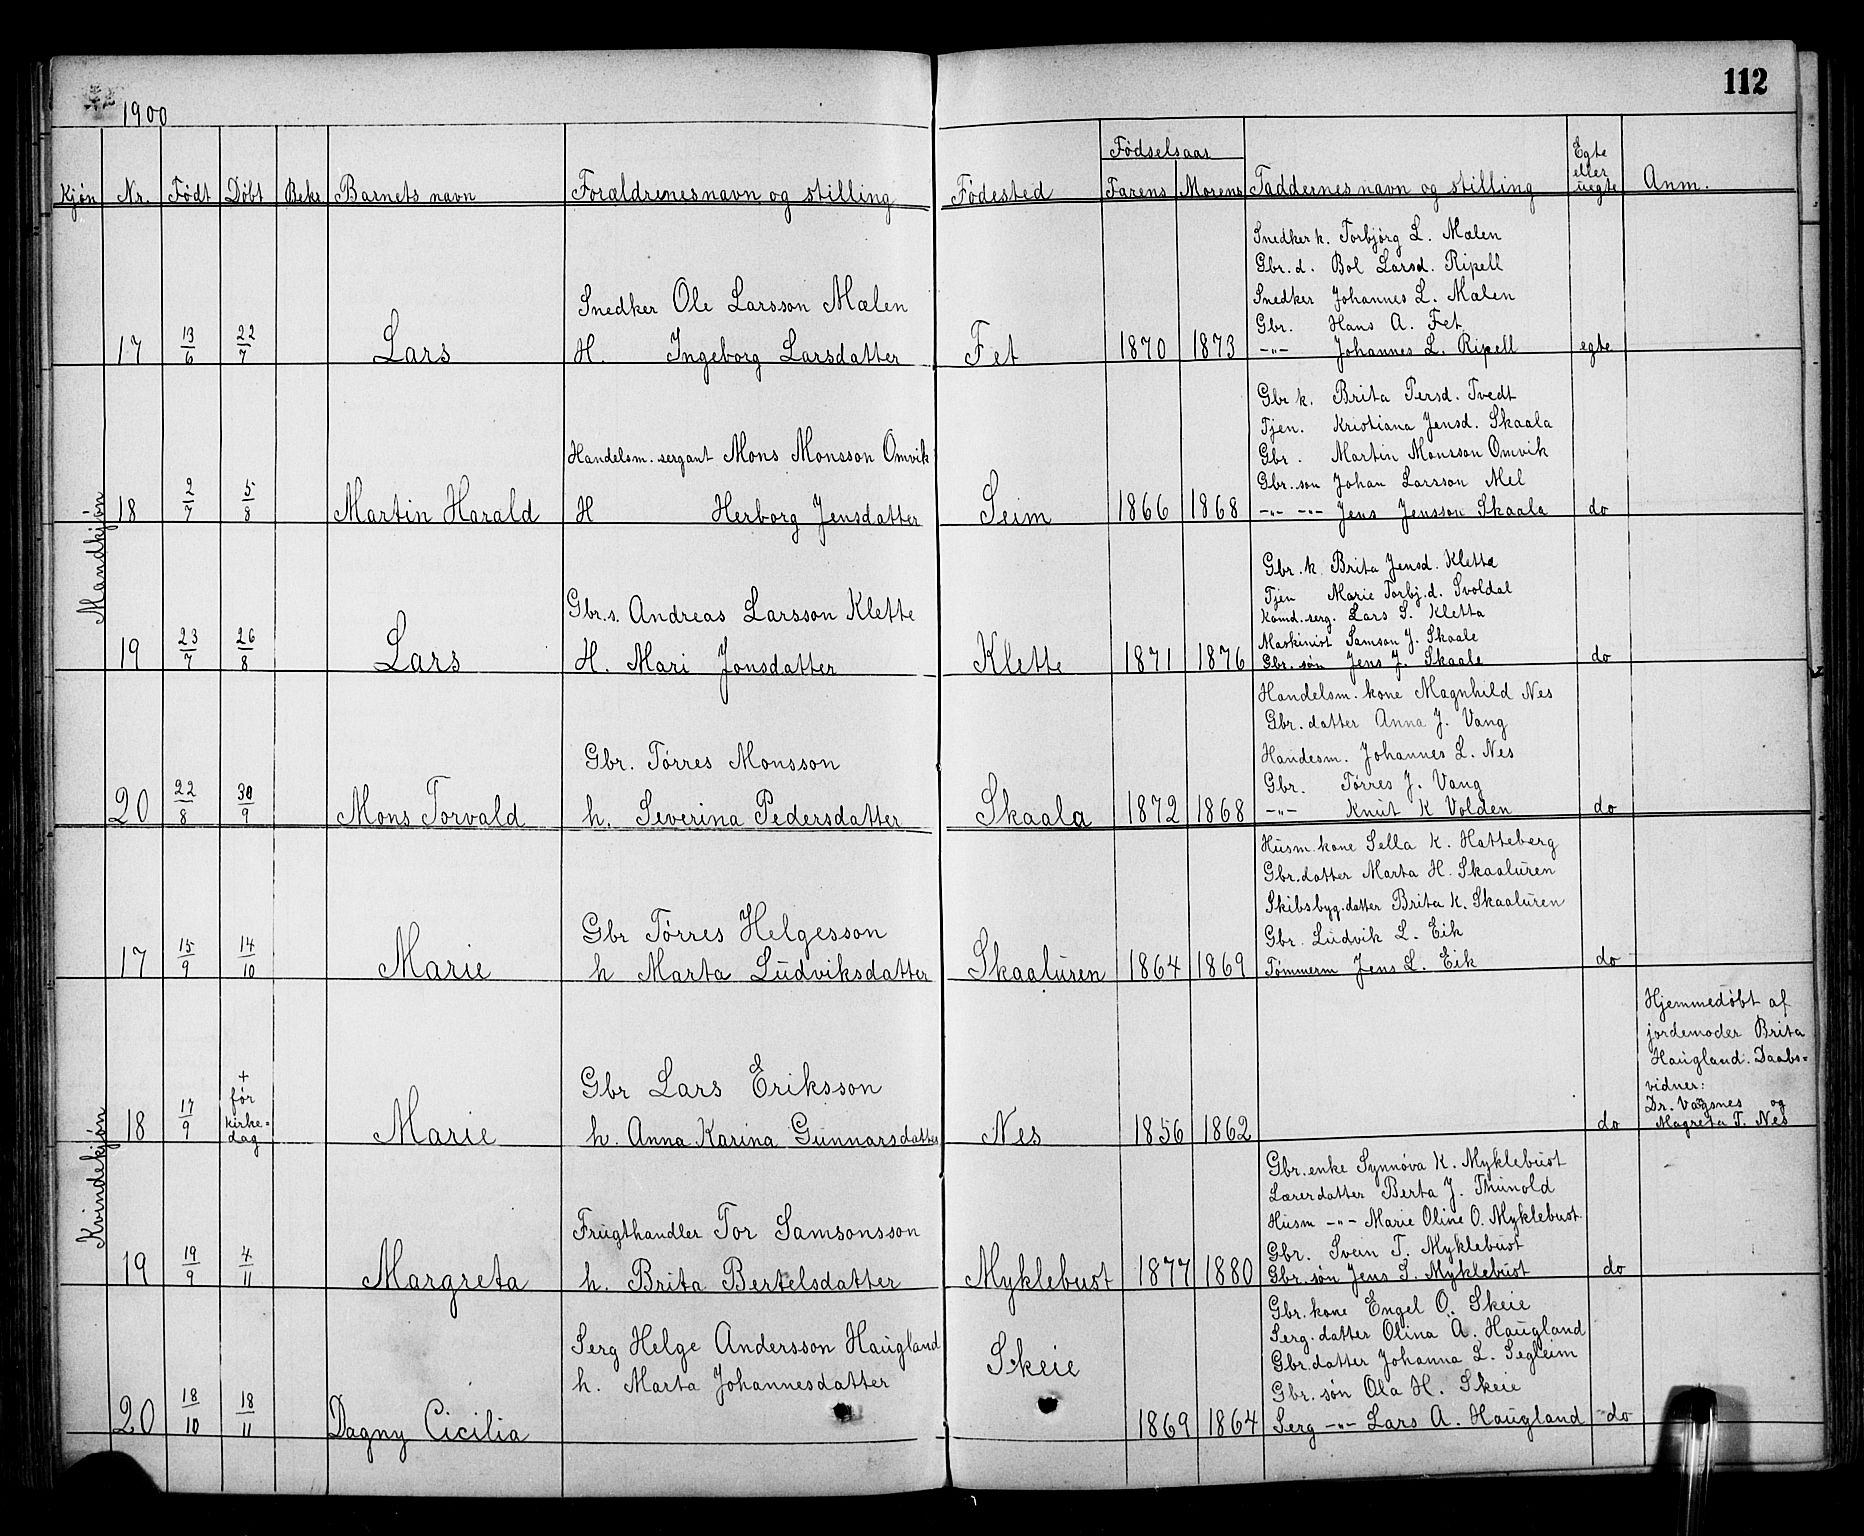 112
1900
Kjøn Nr. Født Døbt Bekr Barnets navn Forældrenes navn og stilling Fødested Fødselsaar Farens Morens Faddernes navn og stilling Egte eller uegte Anm.
Mandkjøn
17 13/6 22/7 Lars
Snedker Ole Larsson Mælen
H. Ingeborg Larsdatter
Fet 1870 1873
Snedker k. Torbjørg L. Mælen
Gbr. d. Bol Larsd. Ripell
Snedker Johannes L. Mælen
Gbr. Hans A. Fet
-"- Johannes L. Ripell
egte
18 2/7 5/8 Martin Harald
Handelsm. sergant Mons Monsson Omvik
H Herborg Jensdatter
Seim 1866 1868
Gbr k. Brita Persd. Tvedt
Tjen. Kristiana Jensd. Skaala
Gbr. Martin Monsson Omvik
Gbr. søn Johan Larsson Mel
-"- -"- Jens Jensson Skaala
do
19 23/7 26/8 Lars
Gbr. s. Andreas Larsson Klette
H. Mari Jonsdatter
Klette 1871 1876
Gbr. k. Brita Jensd. Kletta
Tjen Marie Torbj. d. Svoldal
Komd. serg. Lars S. Kletta
Maskinist Samson J. Skaale
Gbr. søn Jens J. Skaale
do
20 22/8 30/9 Mons Torvald
Gbr. Tørres Monsson
h. Severina Pedersdatter
Skaala 1872 1868
Handelsm. kone Magnhild Nes
Gbr. datter Anna J. Vang
Handesm. Johannes L. Nes
Gbr. Tørres J. Vang
-"- Knut K Volden
do
Kvindekjøn
17 15/9 14/10 Marie
Gbr Tørres Helgesson
h Marta Ludviksdatter
Skaaluren 1864 1869
Husm. kone Sella K. Hatteberg
Gbr. datter Marta H. Skaaluren
Skibsbyg. datter Brita K. Skaaluren
Gbr. Ludvik L. Eik
Tømmerm Jens L. Eik
do
18 17/9 + før kirke=dag Marie
Gbr Lars Eriksson
h. Anna Karina Gunnarsdatter
Nes 1856 1862
do
Hjemmedøbt af
jordemoder Brita
Haugland. Daabs=
vidner:
Dr. Vaagsnes og
Magreta T. Nes
19 19/9 4/11 Margreta
Frugthandler Tor Samsonsson
h. Brita Bertelsdatter
Myklebust 1877 1880
Gbr. enke Synnøva K. Myklebust
Lærerdatter Berta J. Thunold
Husm -"- Marie Oline O. Myklebust
Gbr. Svein T. Myklebust
Gbr. søn Jens S. Myklebust
do
20 18/10 18/11 Dagny Cicilia
Serg Helge Andersson Haugland
h. Marta Johannesdatter
Skeie 1869 1864
Gbr. kone Engel O. Skeie
Serg. datter Olina A. Haugland
Gbr. datter Johanna L. Segleim
Gbr. søn Ola H. Skeie
Serg -"- Lars A. Haugland
do